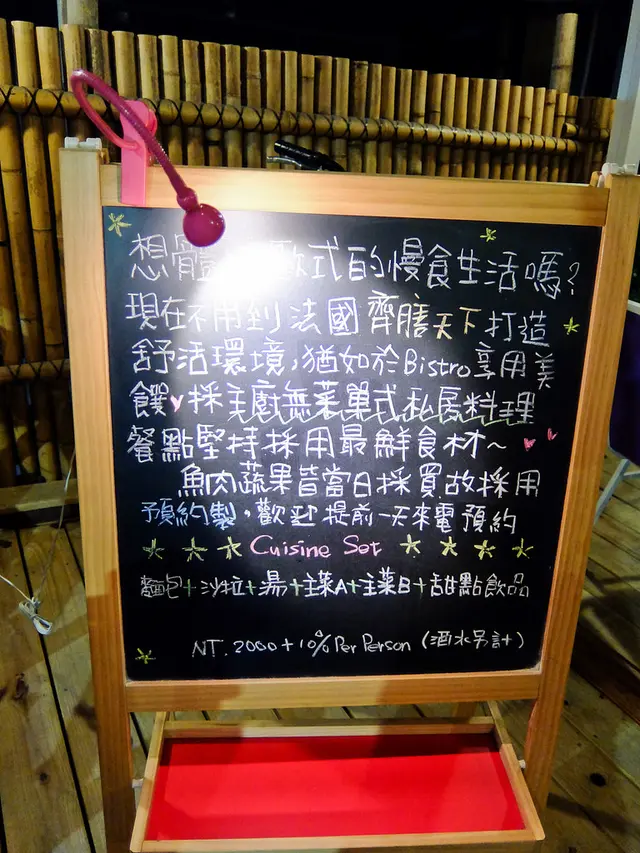 想體歐式的慢食生活嗎?
現在不用到法國齊膳天下打造
舒活環境,猶如於Bistro享用美
饌♥採主廚無菜單式私房料理
餐點堅持採用最鮮食材~
魚肉蔬果皆當日採買故採用
預約製,歡迎提前一天來電預約
Cuisine Set
麵包+沙拉+湯+主菜A+主菜B+甜點飲品
NT. 2000+10% Per Person (酒水另計)